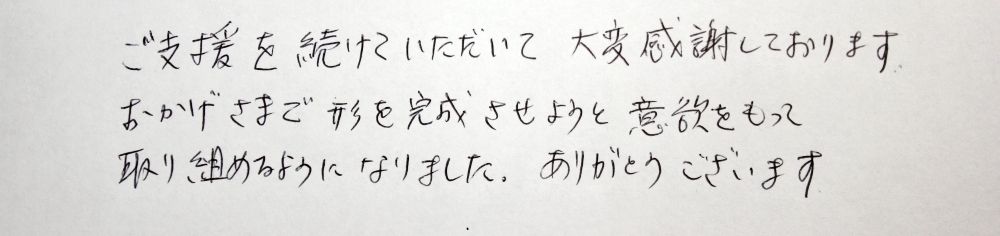 ご支援を続けていただいて 大変感謝しております.
おかげさまで 形を完成させようと 意欲をもって
取り組めるように なりました. ありがとう ございます